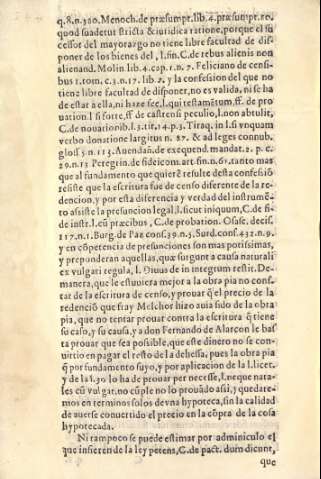 q.8,n.320. Menoch. de præsumpt.lib.4. præsumpt. 10.
quod suadetur stricta & iuridica ratione, porque el su
cessor del mayorazgo no tiene libre facultad de dis-
poner de los bienes del, l. fin. C. de rebus alienis non
alienand. Molin. lib.4. cap. 1. n.7. Feliciano de censi-
bus 1. tom. c.3. n.17. lib.2. y la confesion del que no
tiene libre facultad de disponer, no es valida, ni se ha
de estar à ella, ni haze fee, l. qui testamẽtum, ff. de pro-
uation. l. si forte, ff. de castrensi peculio, l. non abtulit,
C. de nouationib. l.3. tit.14. p.3. Tiraq. in l. si vnquam
verbo donatione largitus n. 87. & ad leges connub.
glos. 5. n.113. Auendañ. de exequend. mandat. 2. p. c.
29. n.13. Peregrin. de fideicom. art. fin. n.61. tanto mas
que al fundamento que quierẽ resulte desta confessiõ
resiste que la escritura fue de censo diferente de la re-
dencion, y por esta diferencia y verdad del instrumẽ-
to assiste la presuncion legal, l. sicut iniquum, C. de fi-
de instr. l. cũ præcibus, C. de probation. Osasc. decis.
117. n.1. Burg. de Paz cons. 39. n.5. Surd. cons. 432. n.9.
y en cõpetencia de presunciones son mas potissimas,
y preponderan aquellas, que surgunt a causa naturali
ex vulgari regula, l. Diuus de in integrum restit. De-
manera, que le estuuiera mejor a la obra pia no cons-
tar de la escritura de censo, y prouar q̃ el precio de la
redenciõ que fray Melchor hizo auia sido de la obra
pia, que no tentar prouar contra la escritura q̃ tiene
su caso, y su causa, y a don Fernando de Alarcon le bas
ta prouar que sea possible, que este dinero no se con-
uirtio en pagar el resto de la dehessa, pues la obra pia
q̃ por fundamento suyo, y por aplicacion de la l. licet.
y de la l.30 lo ha de prouar per necesse, l. neque nata-
les cũ vulgat. no cũple no lo prouãdo assi, y quedare-
mos en terminos solos de vna hypoteca, sin la calidad
de auerse conuertido el precio en la cõpra de la cosa
hypotecada.
Ni tampoco se puede estimar por adminiculo el
que infieren de la ley petens, C. de pact. dum dicunt,
que